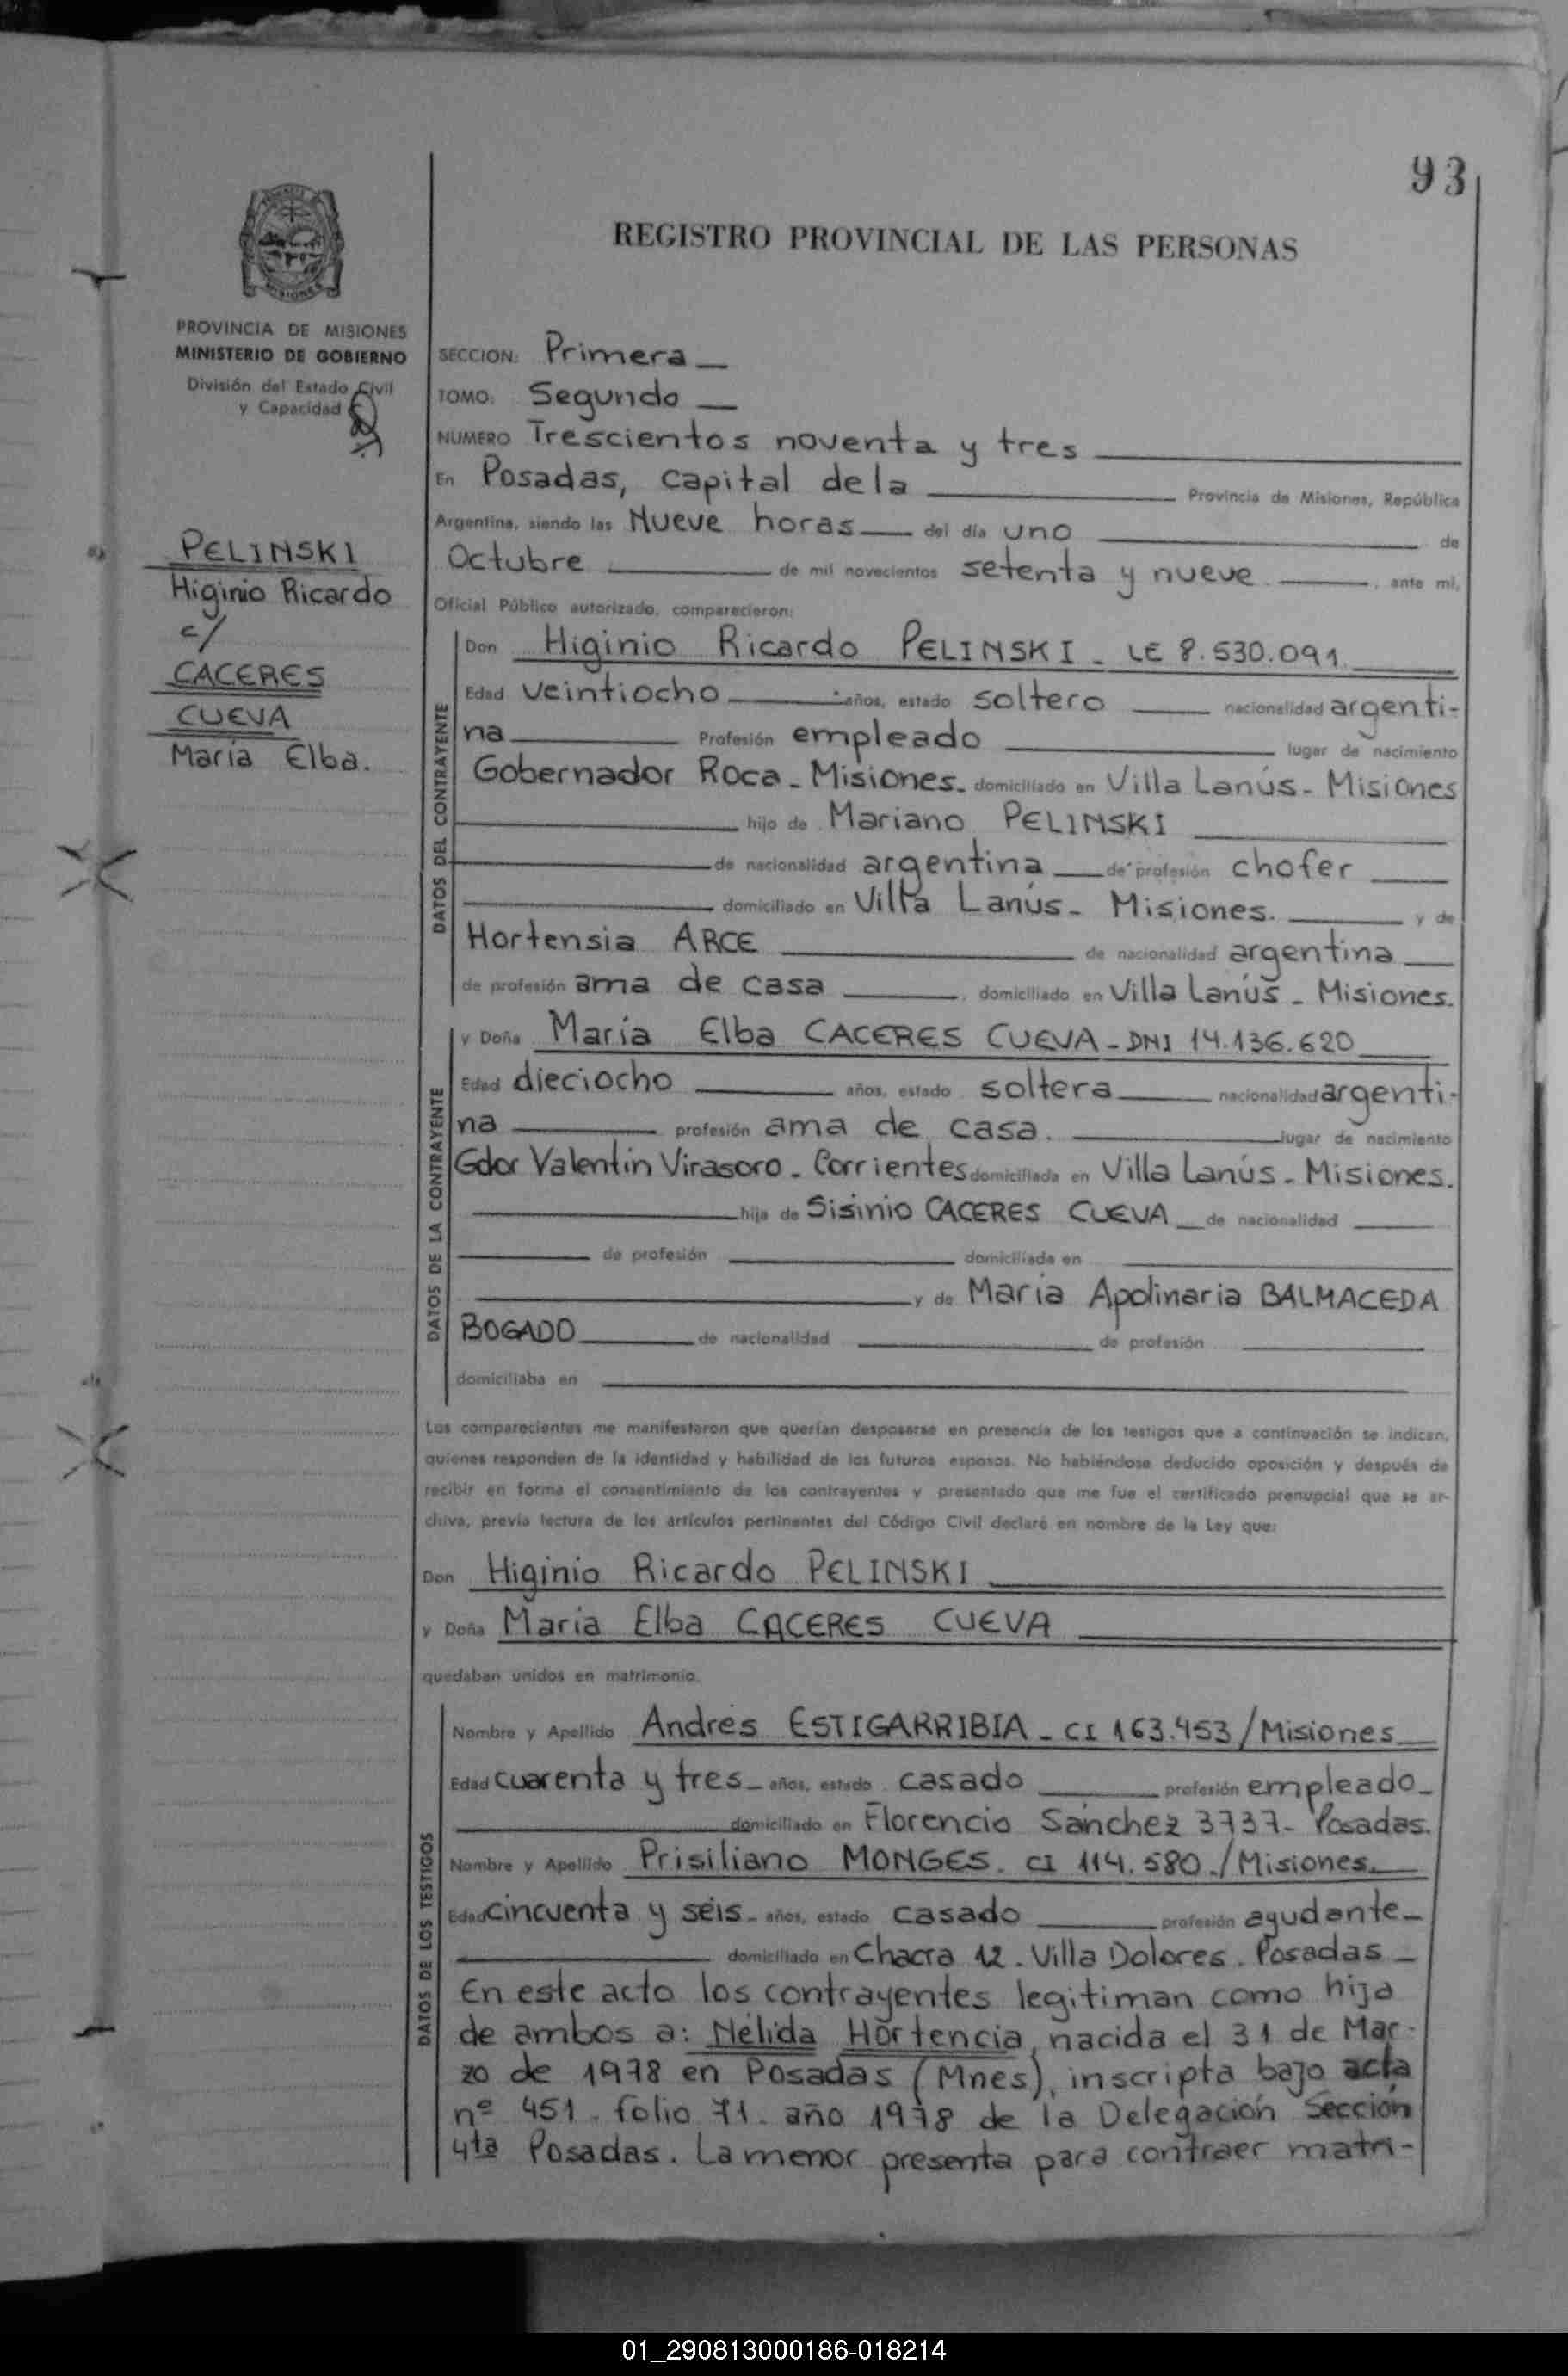 93
REGISTRO PROVINCIAL DE LAS PERSONAS
MISIONES
PROVINCIA DE MISIONES
MINISTERIO DE GOBIERNO
División del Estado Civil
y Capacidad
PELINSKI
Higinio Ricardo
c/
CACERES
CUEVA
María Elba.
SECCION: Primera
TOMO: Segundo
NUMERO Trescientos noventa y tres
En Posadas, capital de la Provincia de Misiones, República
Argentina, siendo las Nueve horas del día uno de
Octubre de mil novecientos setenta y nueve, ante mí,
Oficial Público autorizado, comparecieron:
DATOS DEL CONTRAYENTE
Don Higinio Ricardo PELINSKI - LE 8.530.091.
Edad veintiocho años, estado soltero nacionalidad argenti-
na Profesión empleado lugar de nacimiento
Gobernador Roca - Misiones. domiciliado en Villa Lanús - Misiones
hijo de Mariano PELINSKI
de nacionalidad argentina de profesión chofer
domiciliado en Villa Lanús - Misiones. y de
Hortensia ARCE de nacionalidad argentina
de profesión ama de casa, domiciliado en Villa Lanús - Misiones.
DATOS DE LA CONTRAYENTE
y Doña María Elba CACERES CUEVA - DNI 14.136.620
Edad dieciocho años, estado soltera nacionalidad argenti-
na profesión ama de casa. lugar de nacimiento
Gdor Valentín Virasoro - Corrientes domiciliada en Villa Lanús - Misiones.
hija de Sisinio CACERES CUEVA de nacionalidad
de profesión domiciliada en
y de María Apolinaria BALMACEDA
BOGADO de nacionalidad de profesión
domiciliaba en
Los comparecientes me manifestaron que querían desposarse en presencia de los testigos que a continuación se indican,
quienes responden de la identidad y habilidad de los futuros esposos. No habiéndose deducido oposición y después de
recibir en forma el consentimiento de los contrayentes y presentado que me fue el certificado prenupcial que se ar-
chiva, previa lectura de los artículos pertinentes del Código Civil declaré en nombre de la Ley que:
Don Higinio Ricardo PELINSKI
y Doña María Elba CACERES CUEVA
quedaban unidos en matrimonio.
DATOS DE LOS TESTIGOS
Nombre y Apellido Andrés ESTIGARRIBIA - CI 163.453/Misiones
Edad cuarenta y tres - años, estado casado profesión empleado -
domiciliado en Florencio Sánchez 3737 - Posadas.
Nombre y Apellido Prisiliano MONGES. CI 114.580./Misiones.
Edad cincuenta y séis - años, estado casado profesión ayudante -
domiciliado en Chacra 12. Villa Dolores. Posadas -
En este acto los contrayentes legitiman como hija
de ambos a: Nélida Hortencia, nacida el 31 de Mar-
zo de 1978 en Posadas (Mnes), inscripta bajo acta
nº 451. folio 71. año 1978 de la Delegación Sección
4ta Posadas. La menor presenta para contraer matri-
01_290813000186-018214